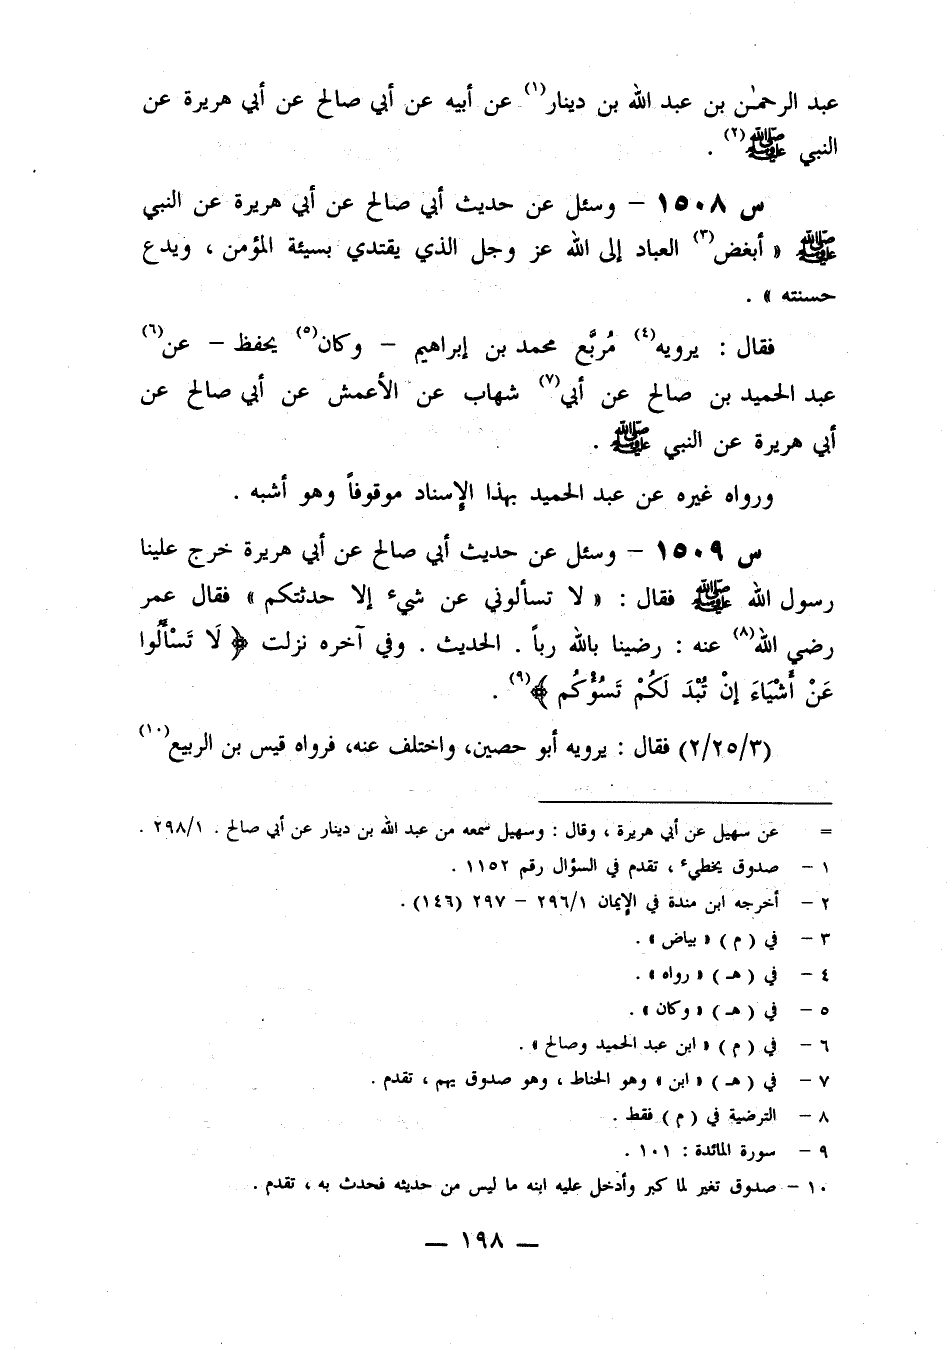 عبد الرحمٰن بن عبد الله بن دينار(١) عن أبيه عن أبي صالح عن أبي هريرة عن
النبي ﷺ(٢) .
س ١٥٠٨ – وسئل عن حديث أبي صالح عن أبي هريرة عن النبي
ﷺ « أبغض(٣) العباد إلى الله عز وجل الذي يقتدي بسيئة المؤمن ، ويدع
حسنته » .
فقال : يرويه(٤) مُربَّع محمد بن إبراهيم – وكان(٥) يحفظ – عن(٦)
عبد الحميد بن صالح عن أبي(٧) شهاب عن الأعمش عن أبي صالح عن
أبي هريرة عن النبي ﷺ .
ورواه غيره عن عبد الحميد بهذا الإسناد موقوفاً وهو أشبه .
س ١٥٠٩ – وسئل عن حديث أبي صالح عن أبي هريرة خرج علينا
رسول الله ﷺ فقال : « لا تسألوني عن شيء إلا حدثتكم » فقال عمر
رضي الله(٨) عنه : رضينا بالله رباً . الحديث . وفي آخره نزلت ﴿ لَا تَسْأَلُوا
عَنْ أَشْيَاءَ إنْ تُبْدَ لَكُمْ تَسُؤْكُم ﴾(٩) .
(٢/٢٥/٣) فقال : يرويه أبو حصين، واختلف عنه، فرواه قيس بن الربيع(١٠)
= عن سهيل عن أبي هريرة ، وقال : وسهيل سمعه من عبد الله بن دينار عن أبي صالح . ٢٩٨/١ .
١ – صدوق يخطيء ، تقدم في السؤال رقم ١١٥٢ .
٢ – أخرجه ابن مندة في الإيمان ٢٩٦/١ – ٢٩٧ (١٤٦) .
٣ – في ( م ) « بياض » .
٤ – في ( هـ ) « رواه » .
٥ – في ( هـ ) « وكان » .
٦ – في ( م ) « ابن عبد الحميد وصالح » .
٧ – في ( هـ ) « ابن » وهو الحناط ، وهو صدوق يهم ، تقدم .
٨ – الترضية في ( م ) فقط .
٩ – سورة المائدة : ١٠١ .
١٠ – صدوق تغير لما كبر وأدخل عليه ابنه ما ليس من حديثه فحدث به ، تقدم .
— ١٩٨ —